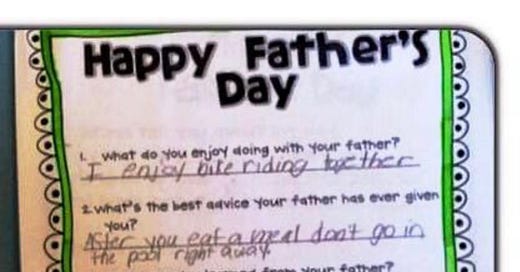 Happy Father's
Day
1. what do you enjoy doing with your father?
I enjoy bike riding together
2. what's the best advice your father has ever given
you?
After you eat a meal dont go in
the pool right away.
from your father?